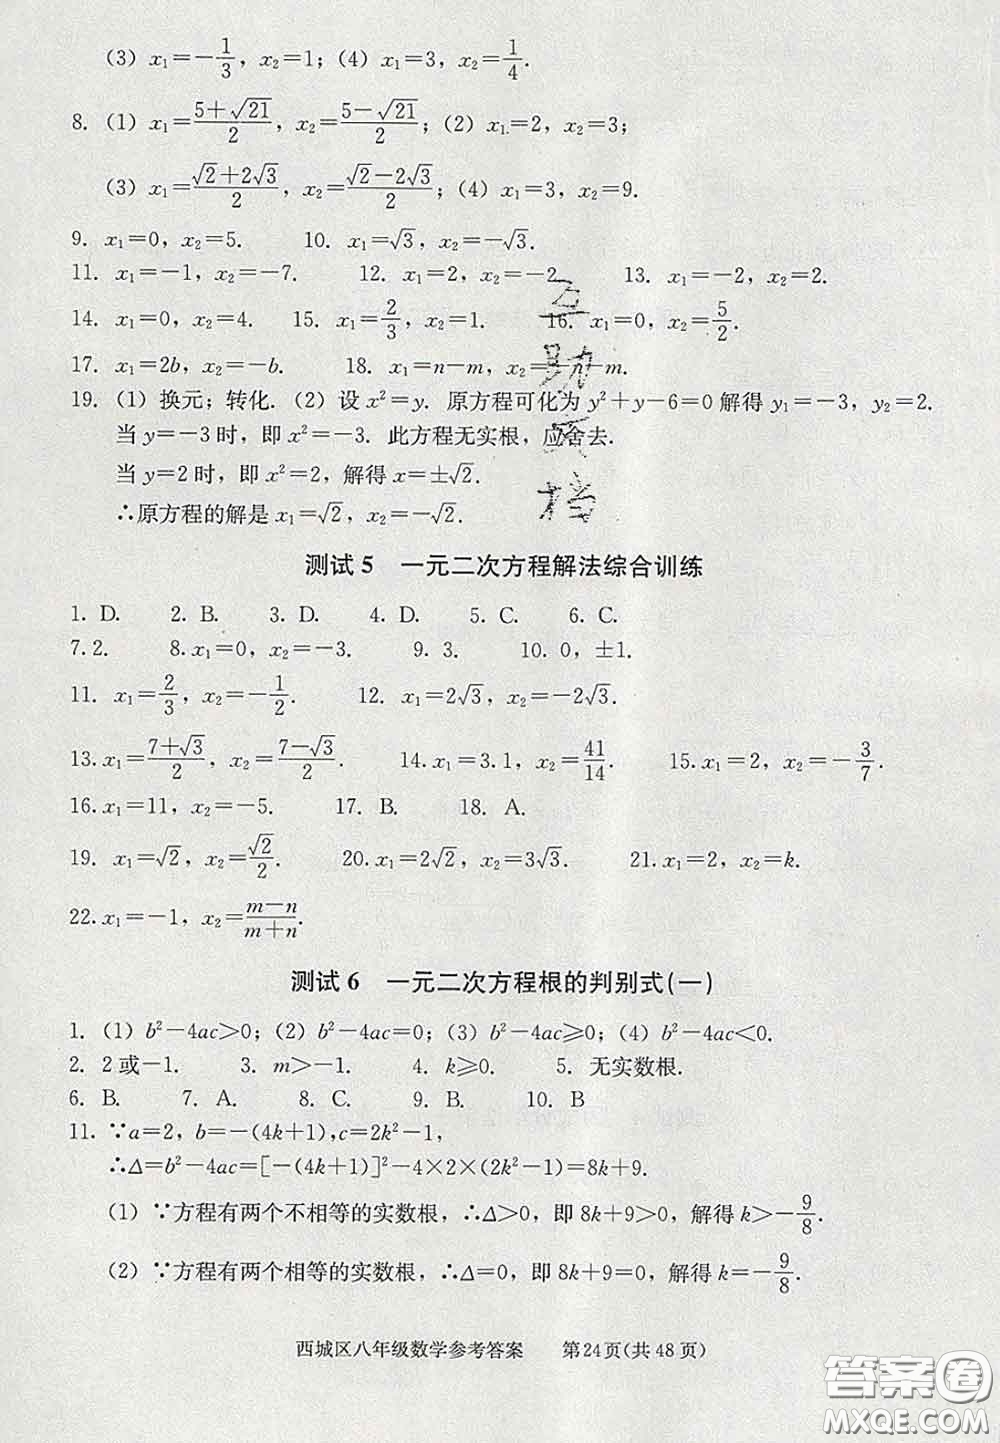 (3) x₁=-1/3, x₂=1; (4) x₁=3, x₂=1/4.
8. (1) x₁=(5+√21)/2, x₂=(5-√21)/2; (2) x₁=2, x₂=3;
(3) x₁=(√2+2√3)/2, x₂=(√2-2√3)/2; (4) x₁=3, x₂=9.
9. x₁=0, x₂=5. 10. x₁=√3, x₂=-√3.
11. x₁=-1, x₂=-7. 12. x₁=2, x₂=-2. 13. x₁=-2, x₂=2.
14. x₁=0, x₂=4. 15. x₁=2/3, x₂=1. 16. x₁=0, x₂=5/2.
17. x₁=2b, x₂=-b. 18. x₁=n-m, x₂=-n-m.
19. (1) 换元; 转化. (2) 设 x²=y. 原方程可化为 y²+y-6=0 解得 y₁=-3, y₂=2.
当 y=-3 时, 即 x²=-3. 此方程无实根, 应舍去.
当 y=2 时, 即 x²=2, 解得 x=±√2.
∴原方程的解是 x₁=√2, x₂=-√2.
测试 5 一元二次方程解法综合训练
1. D. 2. B. 3. D. 4. D. 5. C. 6. C.
7. 2. 8. x₁=0, x₂=-3. 9. 3. 10. 0, ±1.
11. x₁=2/3, x₂=-1/2. 12. x₁=2√3, x₂=-2√3.
13. x₁=(7+√3)/2, x₂=(7-√3)/2. 14. x₁=3.1, x₂=41/14. 15. x₁=2, x₂=-3/7.
16. x₁=11, x₂=-5. 17. B. 18. A.
19. x₁=√2, x₂=√2/2. 20. x₁=2√2, x₂=3√3. 21. x₁=2, x₂=k.
22. x₁=-1, x₂=(m-n)/(m+n).
测试 6 一元二次方程根的判别式(一)
1. (1) b²-4ac>0; (2) b²-4ac=0; (3) b²-4ac≥0; (4) b²-4ac<0.
2. 2或-1. 3. m>-1. 4. k≥0. 5. 无实数根.
6. B. 7. A. 8. C. 9. B. 10. B
11. ∵a=2, b=-(4k+1), c=2k²-1,
∴Δ=b²-4ac=[-(4k+1)]²-4×2×(2k²-1)=8k+9.
(1) ∵方程有两个不相等的实数根, ∴Δ>0, 即 8k+9>0, 解得 k>-9/8.
(2) ∵方程有两个相等的实数根, ∴Δ=0, 即 8k+9=0, 解得 k=-9/8.
西城区八年级数学参考答案 第24页(共 48 页)
答案圈
MXQE.COM